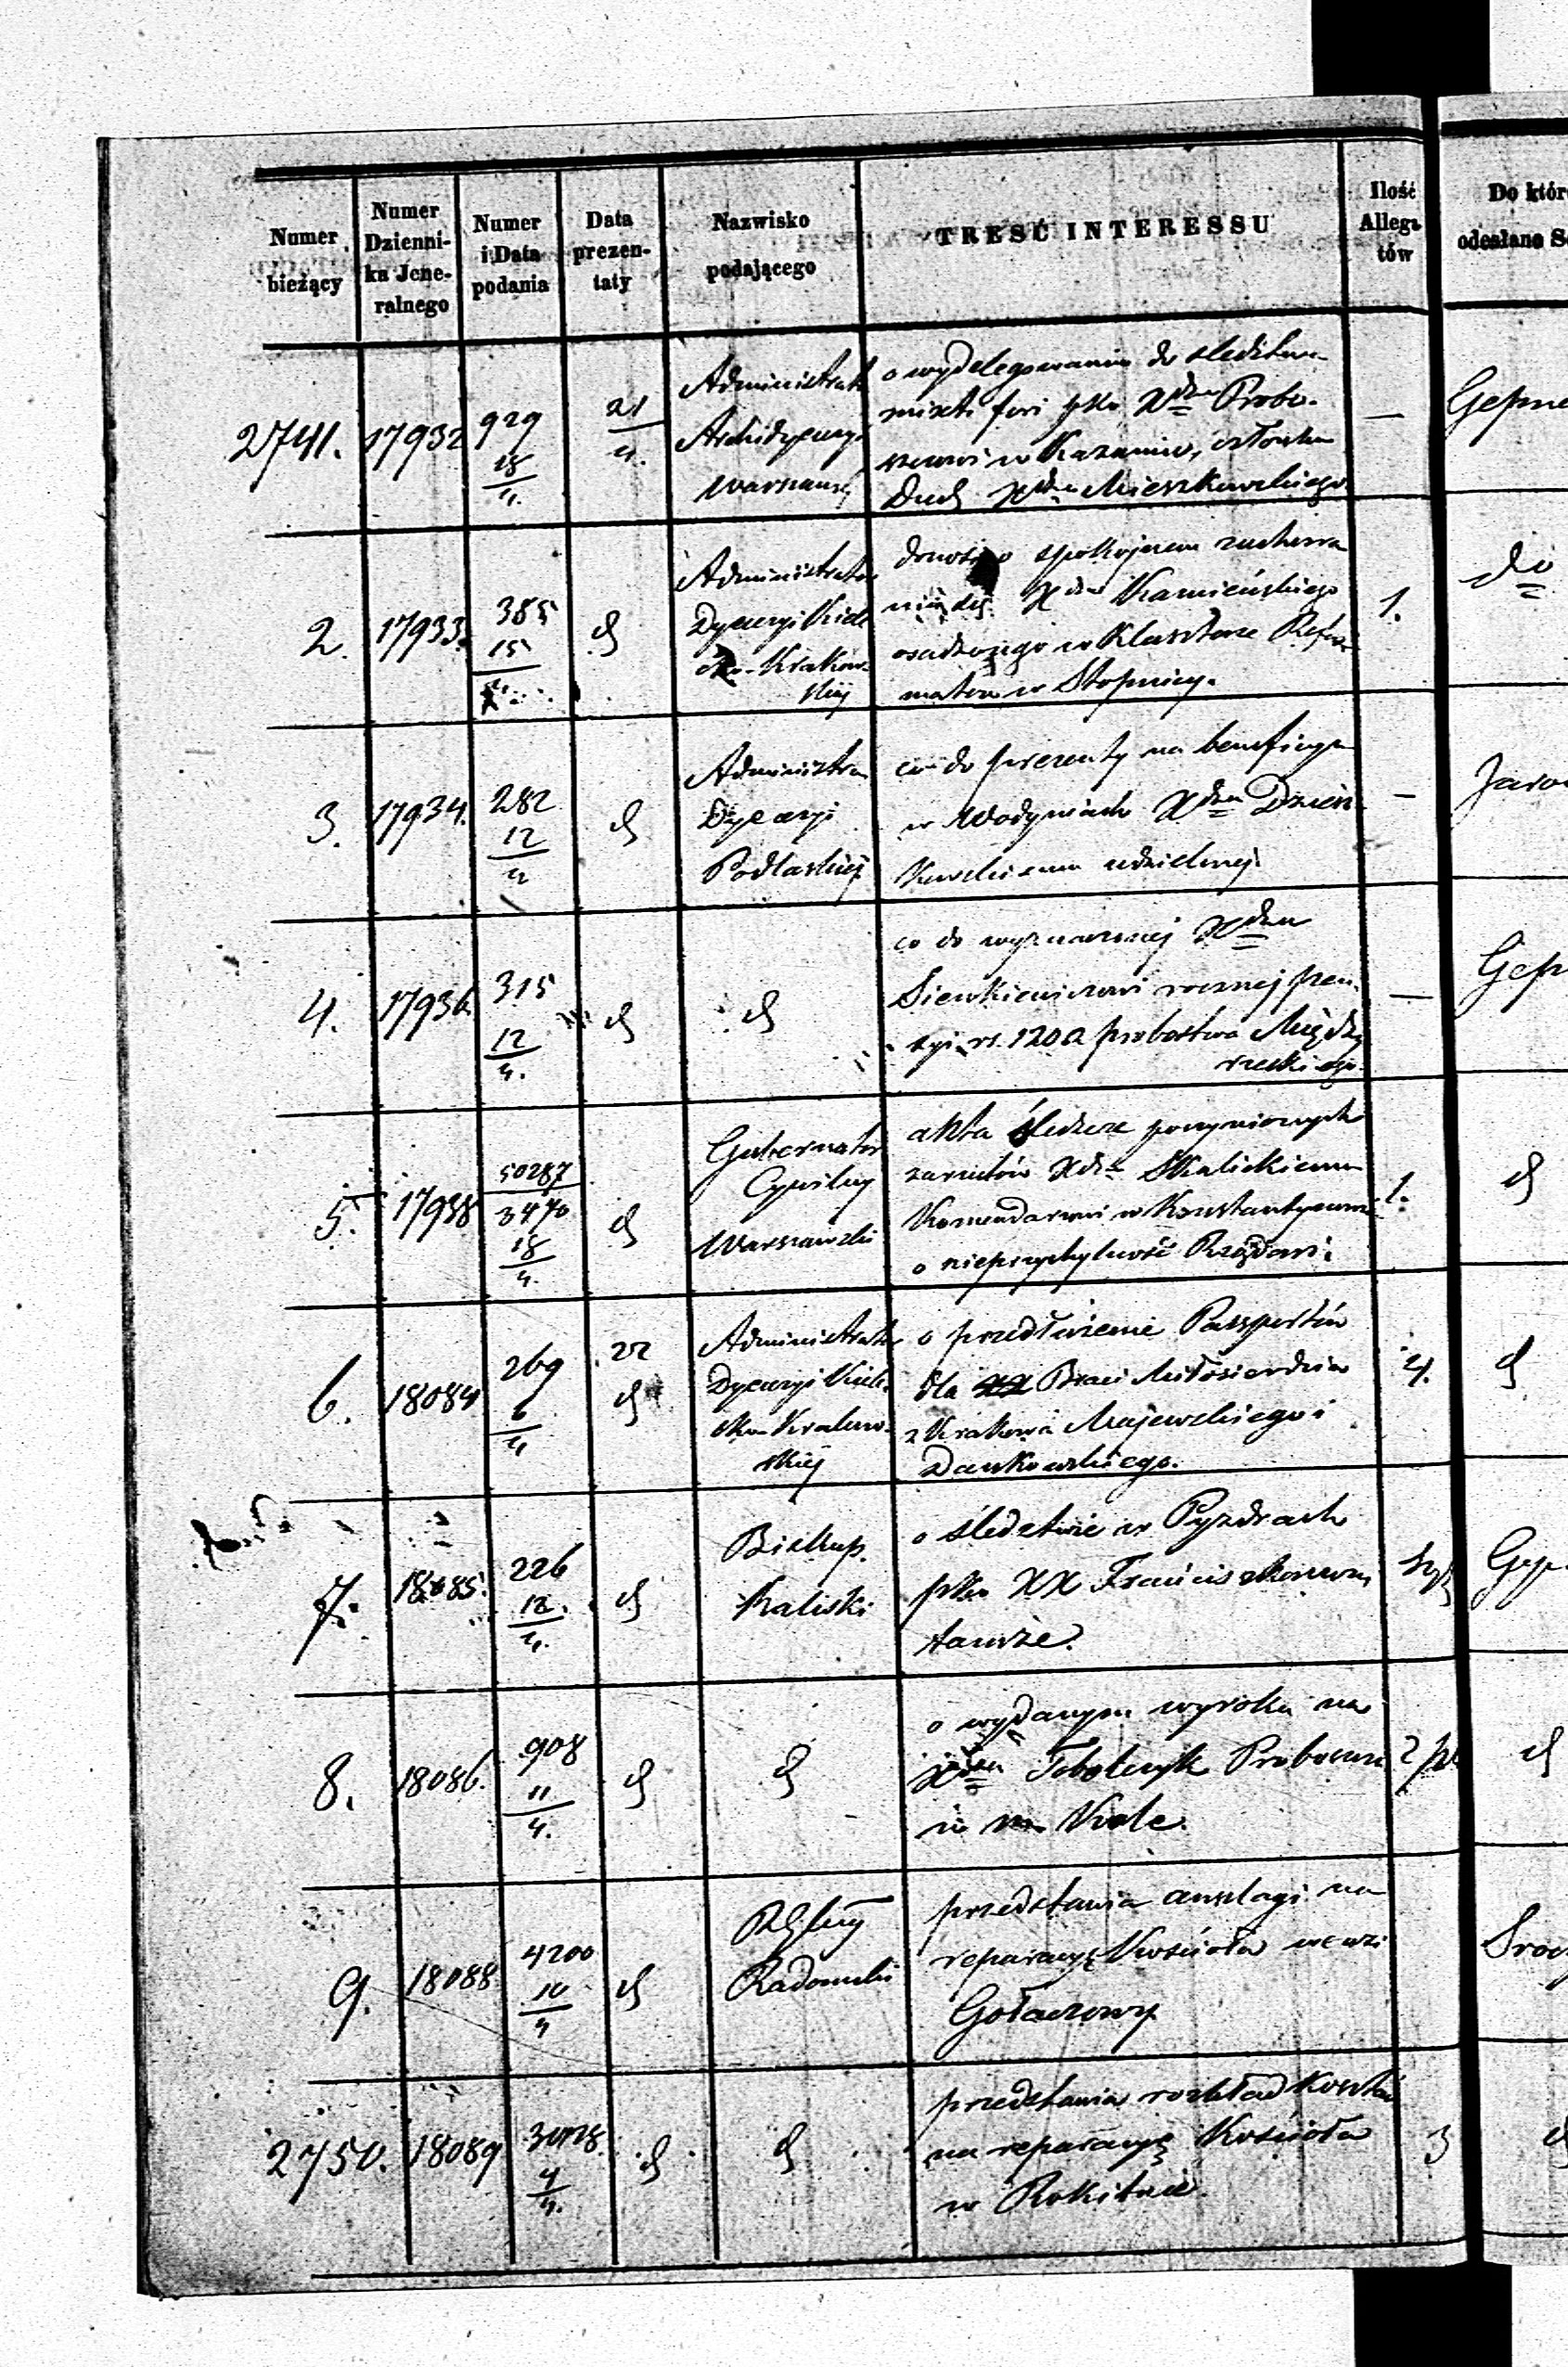 Numer bieżący
Numer Dzienni- ka Jene- ralnego
Numer i Data podania
Data prezen- taty
Nazwisko podającego
TREŚĆ INTERESSU
Ilość Allega- tów
Do któr
odesłane S
2741. 17932 929 18/4. 21/4.
Administrat
Archidyecezyi
Warszawsk
o wydelegowanie do sledztwa
mixti fori pko Xdzu Probo-
szczowi w Kazaniu, członka
Duch Xdza Mieszkowskiego
—
Gepne
2. 17933. 385 15/4 d
Administrator
Dyecezyi Kiele
cko-Krakow-
skiej
donosi o spokojnem zachowa
niu się Xdza Kamieńskiego
osadzonego w Klasztorze Refor
matów w Stopnicy.
1.
do
3. 17934. 282 12/4 d
Administra
Dyecezyi
Podlaskiej
co do prezenty na beneficyum
w Wodyniach Xdzu
udzielonej.
—
Jaro
4. 17936. 315 12/4. d d
co do wyznaczonej Xdzu
Sienkiewiczowi rocznej pen-
syi rs. 120 z probostwa Między
rzeckiego.
—
Gep
5. 17938 50287/3470 18/4. d
Gubernator
Cywilny
Warszawski
akta śledcze poczynionych
zarzutów Xdzu Skalickiemu
Komendarzowi w Konstantynowie
o nieprzychylność Rządowi.
1.
d
6. 18084 269 6/4 22 d
Administrator
Dyecezyi Kiele
cko-Krakow-
skiej
o przedłużenie Passportów
dla Braci Miłosierdzia
z Krakowa Majewskiego i
Dankowskiego.
4.
d
7. 18085. 226 12/4. d
Biskup
Kaliski
o śledztwie w Pyzdrach
pko XX Franciszkanom
tamże.
Gep
8. 18086. 908 11/4. d d
o wydanym wyroku na
Xdza Tobolczyk Proboszcza
w m. Kole.
2
d
9. 18088 4200 10/4 d
Rząd Gub
Radomski
przedstawia anszlagi na
reparacyę Kościoła we wsi
Gołaczowy
2750. 18089 3078 4/4. d d
przedstawia rozkład kosztów
na reparacyę Kościoła
w Rokitnie.
3
d